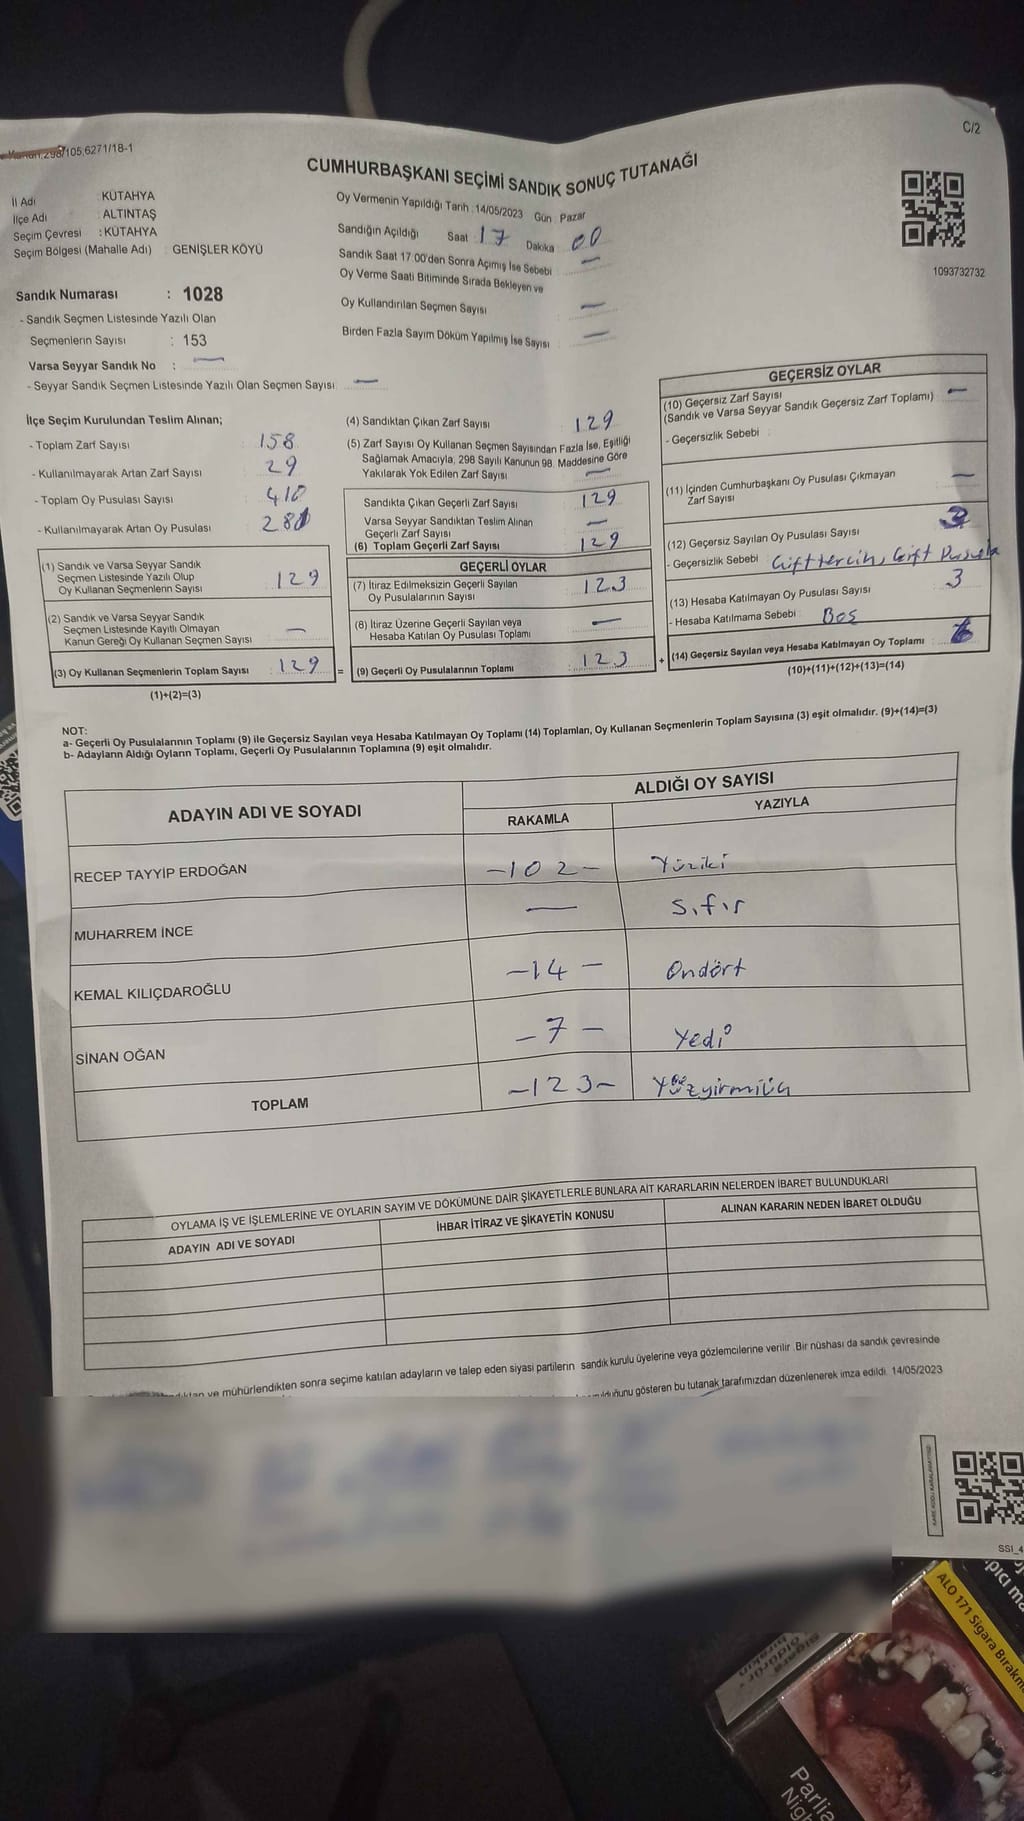 298/105,6271/18-1
C/2
CUMHURBAŞKANI SEÇİMİ SANDIK SONUÇ TUTANAĞI
İl Adı : KÜTAHYA
İlçe Adı : ALTINTAŞ
Seçim Çevresi : KÜTAHYA
Seçim Bölgesi (Mahalle Adı) : GENİŞLER KÖYÜ
Sandık Numarası : 1028
- Sandık Seçmen Listesinde Yazılı Olan
Seçmenlerin Sayısı : 153
Varsa Seyyar Sandık No : —
- Seyyar Sandık Seçmen Listesinde Yazılı Olan Seçmen Sayısı : —
Oy Vermenin Yapıldığı Tarih : 14/05/2023 Gün : Pazar
Sandığın Açıldığı Saat 17 Dakika 00
Sandık Saat 17.00'den Sonra Açımış İse Sebebi —
Oy Verme Saati Bitiminde Sırada Bekleyen ve
Oy Kullandırılan Seçmen Sayısı —
Birden Fazla Sayım Döküm Yapılmış İse Sayısı —
1093732732
İlçe Seçim Kurulundan Teslim Alınan;
- Toplam Zarf Sayısı 158
- Kullanılmayarak Artan Zarf Sayısı 29
- Toplam Oy Pusulası Sayısı 410
- Kullanılmayarak Artan Oy Pusulası 281
(1) Sandık ve Varsa Seyyar Sandık
Seçmen Listesinde Yazılı Olup
Oy Kullanan Seçmenlerin Sayısı : 129
(2) Sandık ve Varsa Seyyar Sandık
Seçmen Listesinde Kayıtlı Olmayan
Kanun Gereği Oy Kullanan Seçmen Sayısı : —
(3) Oy Kullanan Seçmenlerin Toplam Sayısı : 129 =
(1)+(2)=(3)
(4) Sandıktan Çıkan Zarf Sayısı 129
(5) Zarf Sayısı Oy Kullanan Seçmen Sayısından Fazla İse, Eşitliği
Sağlamak Amacıyla, 298 Sayılı Kanunun 98. Maddesine Göre
Yakılarak Yok Edilen Zarf Sayısı —
Sandıkta Çıkan Geçerli Zarf Sayısı 129
Varsa Seyyar Sandıktan Teslim Alınan
Geçerli Zarf Sayısı —
(6) Toplam Geçerli Zarf Sayısı 129
GEÇERLİ OYLAR
(7) İtiraz Edilmeksizin Geçerli Sayılan
Oy Pusulalarının Sayısı : 123
(8) İtiraz Üzerine Geçerli Sayılan veya
Hesaba Katılan Oy Pusulası Toplamı : —
(9) Geçerli Oy Pusulalarının Toplamı : 123 +
GEÇERSİZ OYLAR
(10) Geçersiz Zarf Sayısı
(Sandık ve Varsa Seyyar Sandık Geçersiz Zarf Toplamı) —
- Geçersizlik Sebebi :
(11) İçinden Cumhurbaşkanı Oy Pusulası Çıkmayan
Zarf Sayısı —
(12) Geçersiz Sayılan Oy Pusulası Sayısı 3
- Geçersizlik Sebebi : Çift tercih, Çift Pusula
(13) Hesaba Katılmayan Oy Pusulası Sayısı 3
- Hesaba Katılmama Sebebi : Boş
(14) Geçersiz Sayılan veya Hesaba Katılmayan Oy Toplamı : 6
(10)+(11)+(12)+(13)=(14)
NOT:
a- Geçerli Oy Pusulalarının Toplamı (9) ile Geçersiz Sayılan veya Hesaba Katılmayan Oy Toplamı (14) Toplamları, Oy Kullanan Seçmenlerin Toplam Sayısına (3) eşit olmalıdır. (9)+(14)=(3)
b- Adayların Aldığı Oyların Toplamı, Geçerli Oy Pusulalarının Toplamına (9) eşit olmalıdır.
ADAYIN ADI VE SOYADI
ALDIĞI OY SAYISI
RAKAMLA YAZIYLA
RECEP TAYYİP ERDOĞAN -102- Yüziki
MUHARREM İNCE — Sıfır
KEMAL KILIÇDAROĞLU -14- Ondört
SİNAN OĞAN -7- Yedi
TOPLAM -123- Yüzyirmiüç
OYLAMA İŞ VE İŞLEMLERİNE VE OYLARIN SAYIM VE DÖKÜMÜNE DAİR ŞİKAYETLERLE BUNLARA AİT KARARLARIN NELERDEN İBARET BULUNDUKLARI
ADAYIN ADI VE SOYADI İHBAR İTİRAZ VE ŞİKAYETİN KONUSU ALINAN KARARIN NEDEN İBARET OLDUĞU
ve mühürlendikten sonra seçime katılan adayların ve talep eden siyasi partilerin sandık kurulu üyelerine veya gözlemcilerine verilir. Bir nüshası da sandık çevresinde
gösteren bu tutanak tarafımızdan düzenlenerek imza edildi. 14/05/2023
SSI_4
ALO 171 Sigara Bırakm
Parlia
Nigh